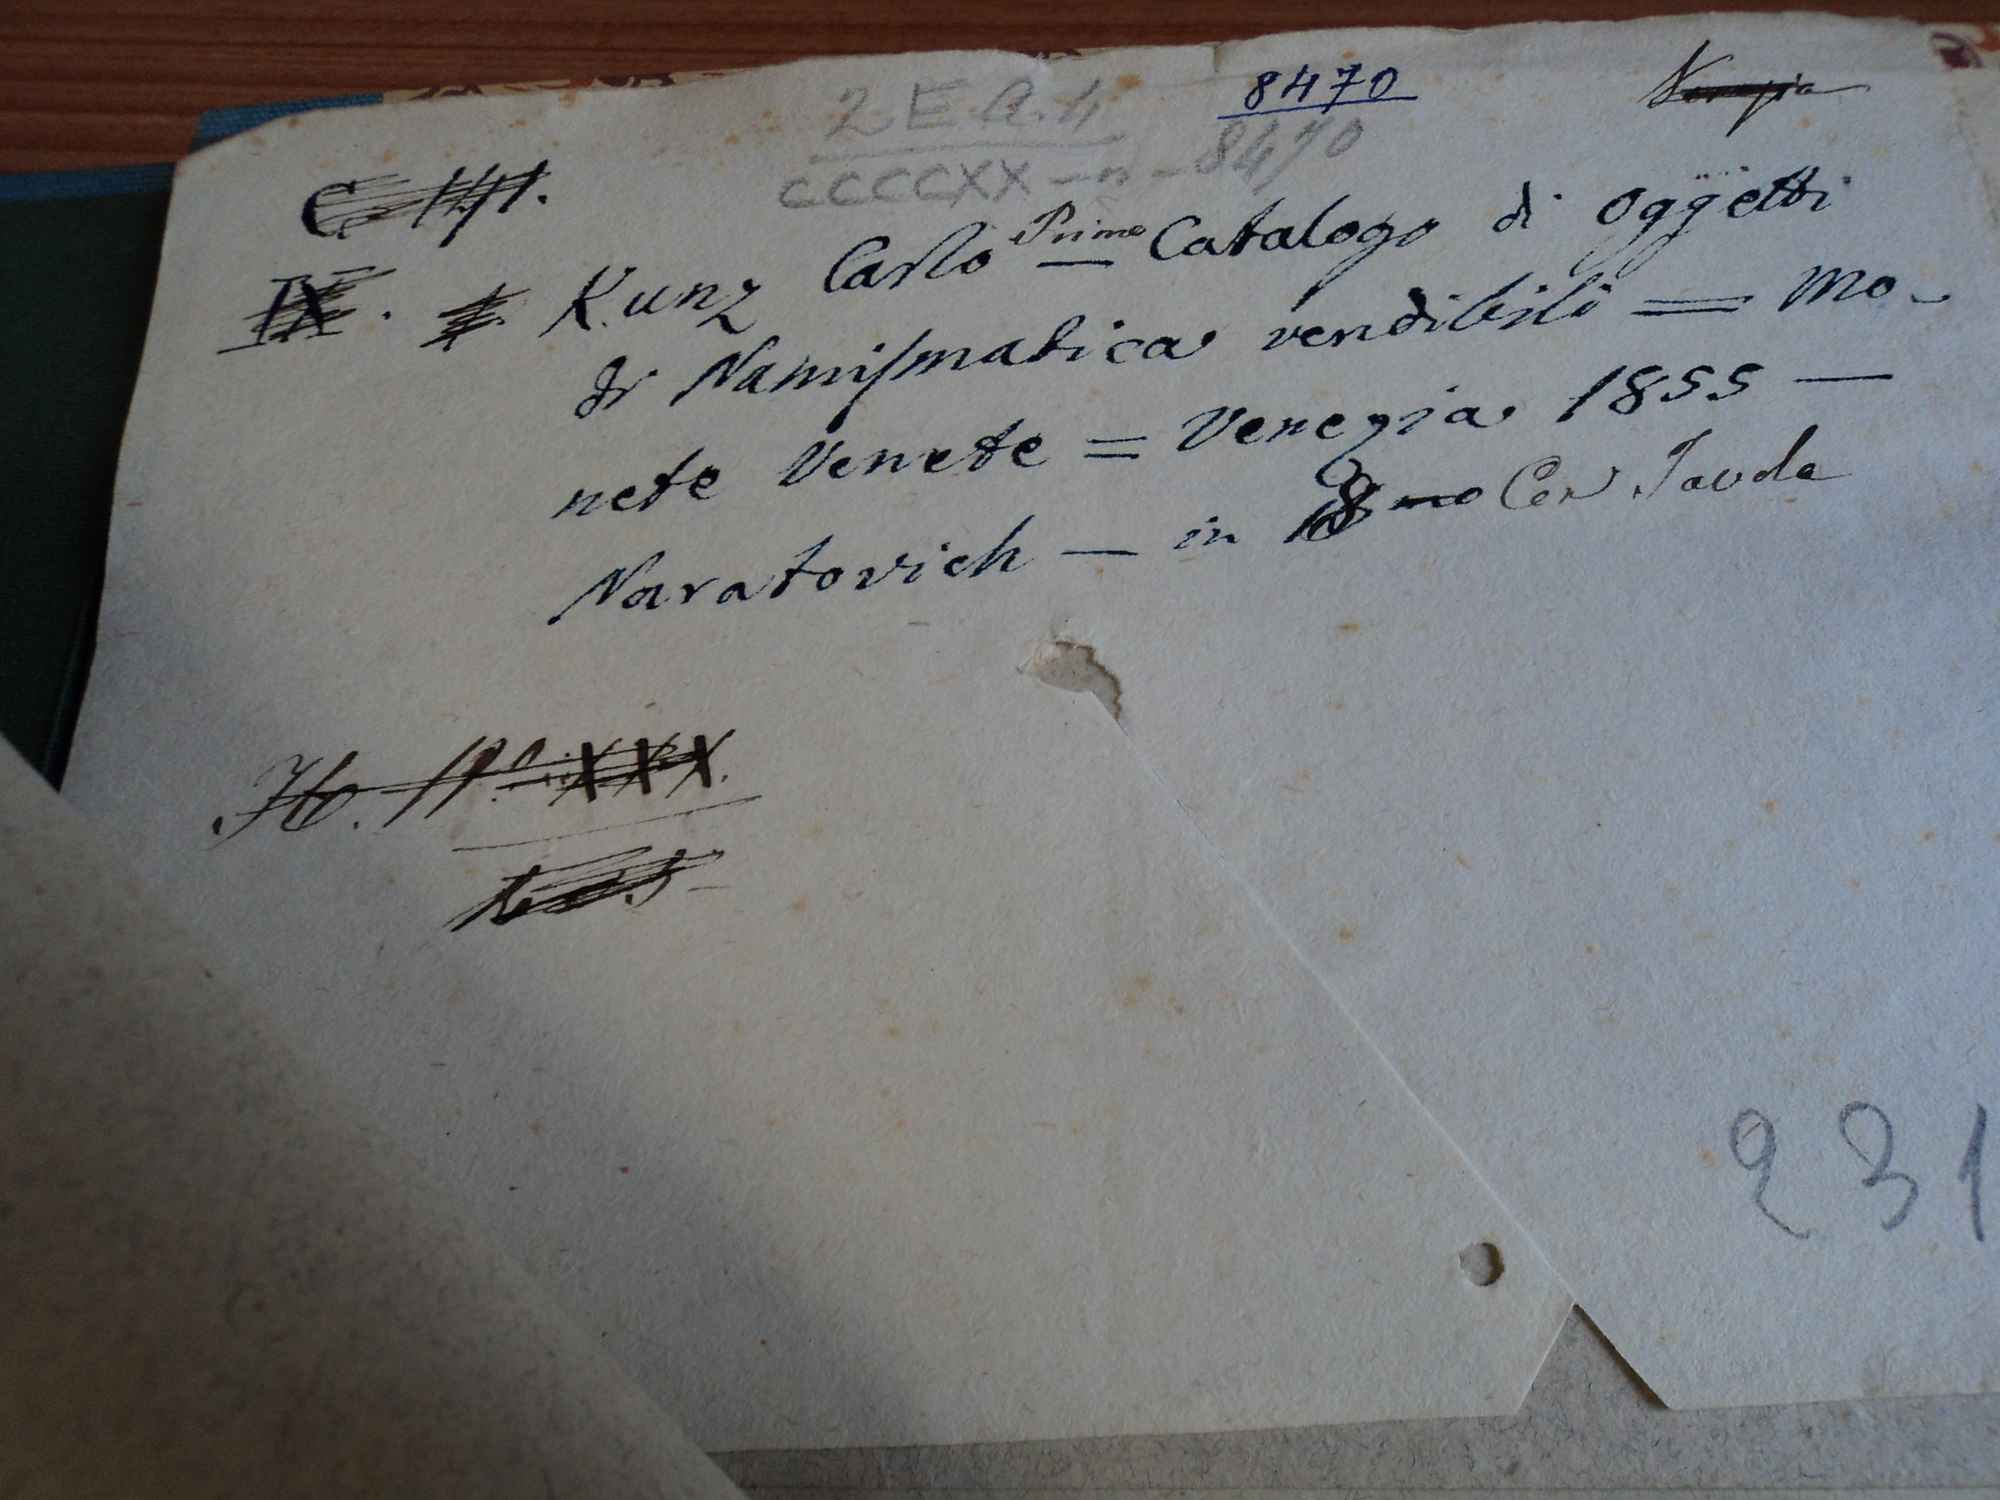 8470
Venezia
2. E. A. 4
CCCCXX - n - 8470
IX.
Kunz Carlo - Primo Catalogo di Oggetti
di Numismatica vendibili = Mo-
nete Venete = Venezia 1855 -
Naratovich - in 8mo Con Tavole
No. XXX.
231